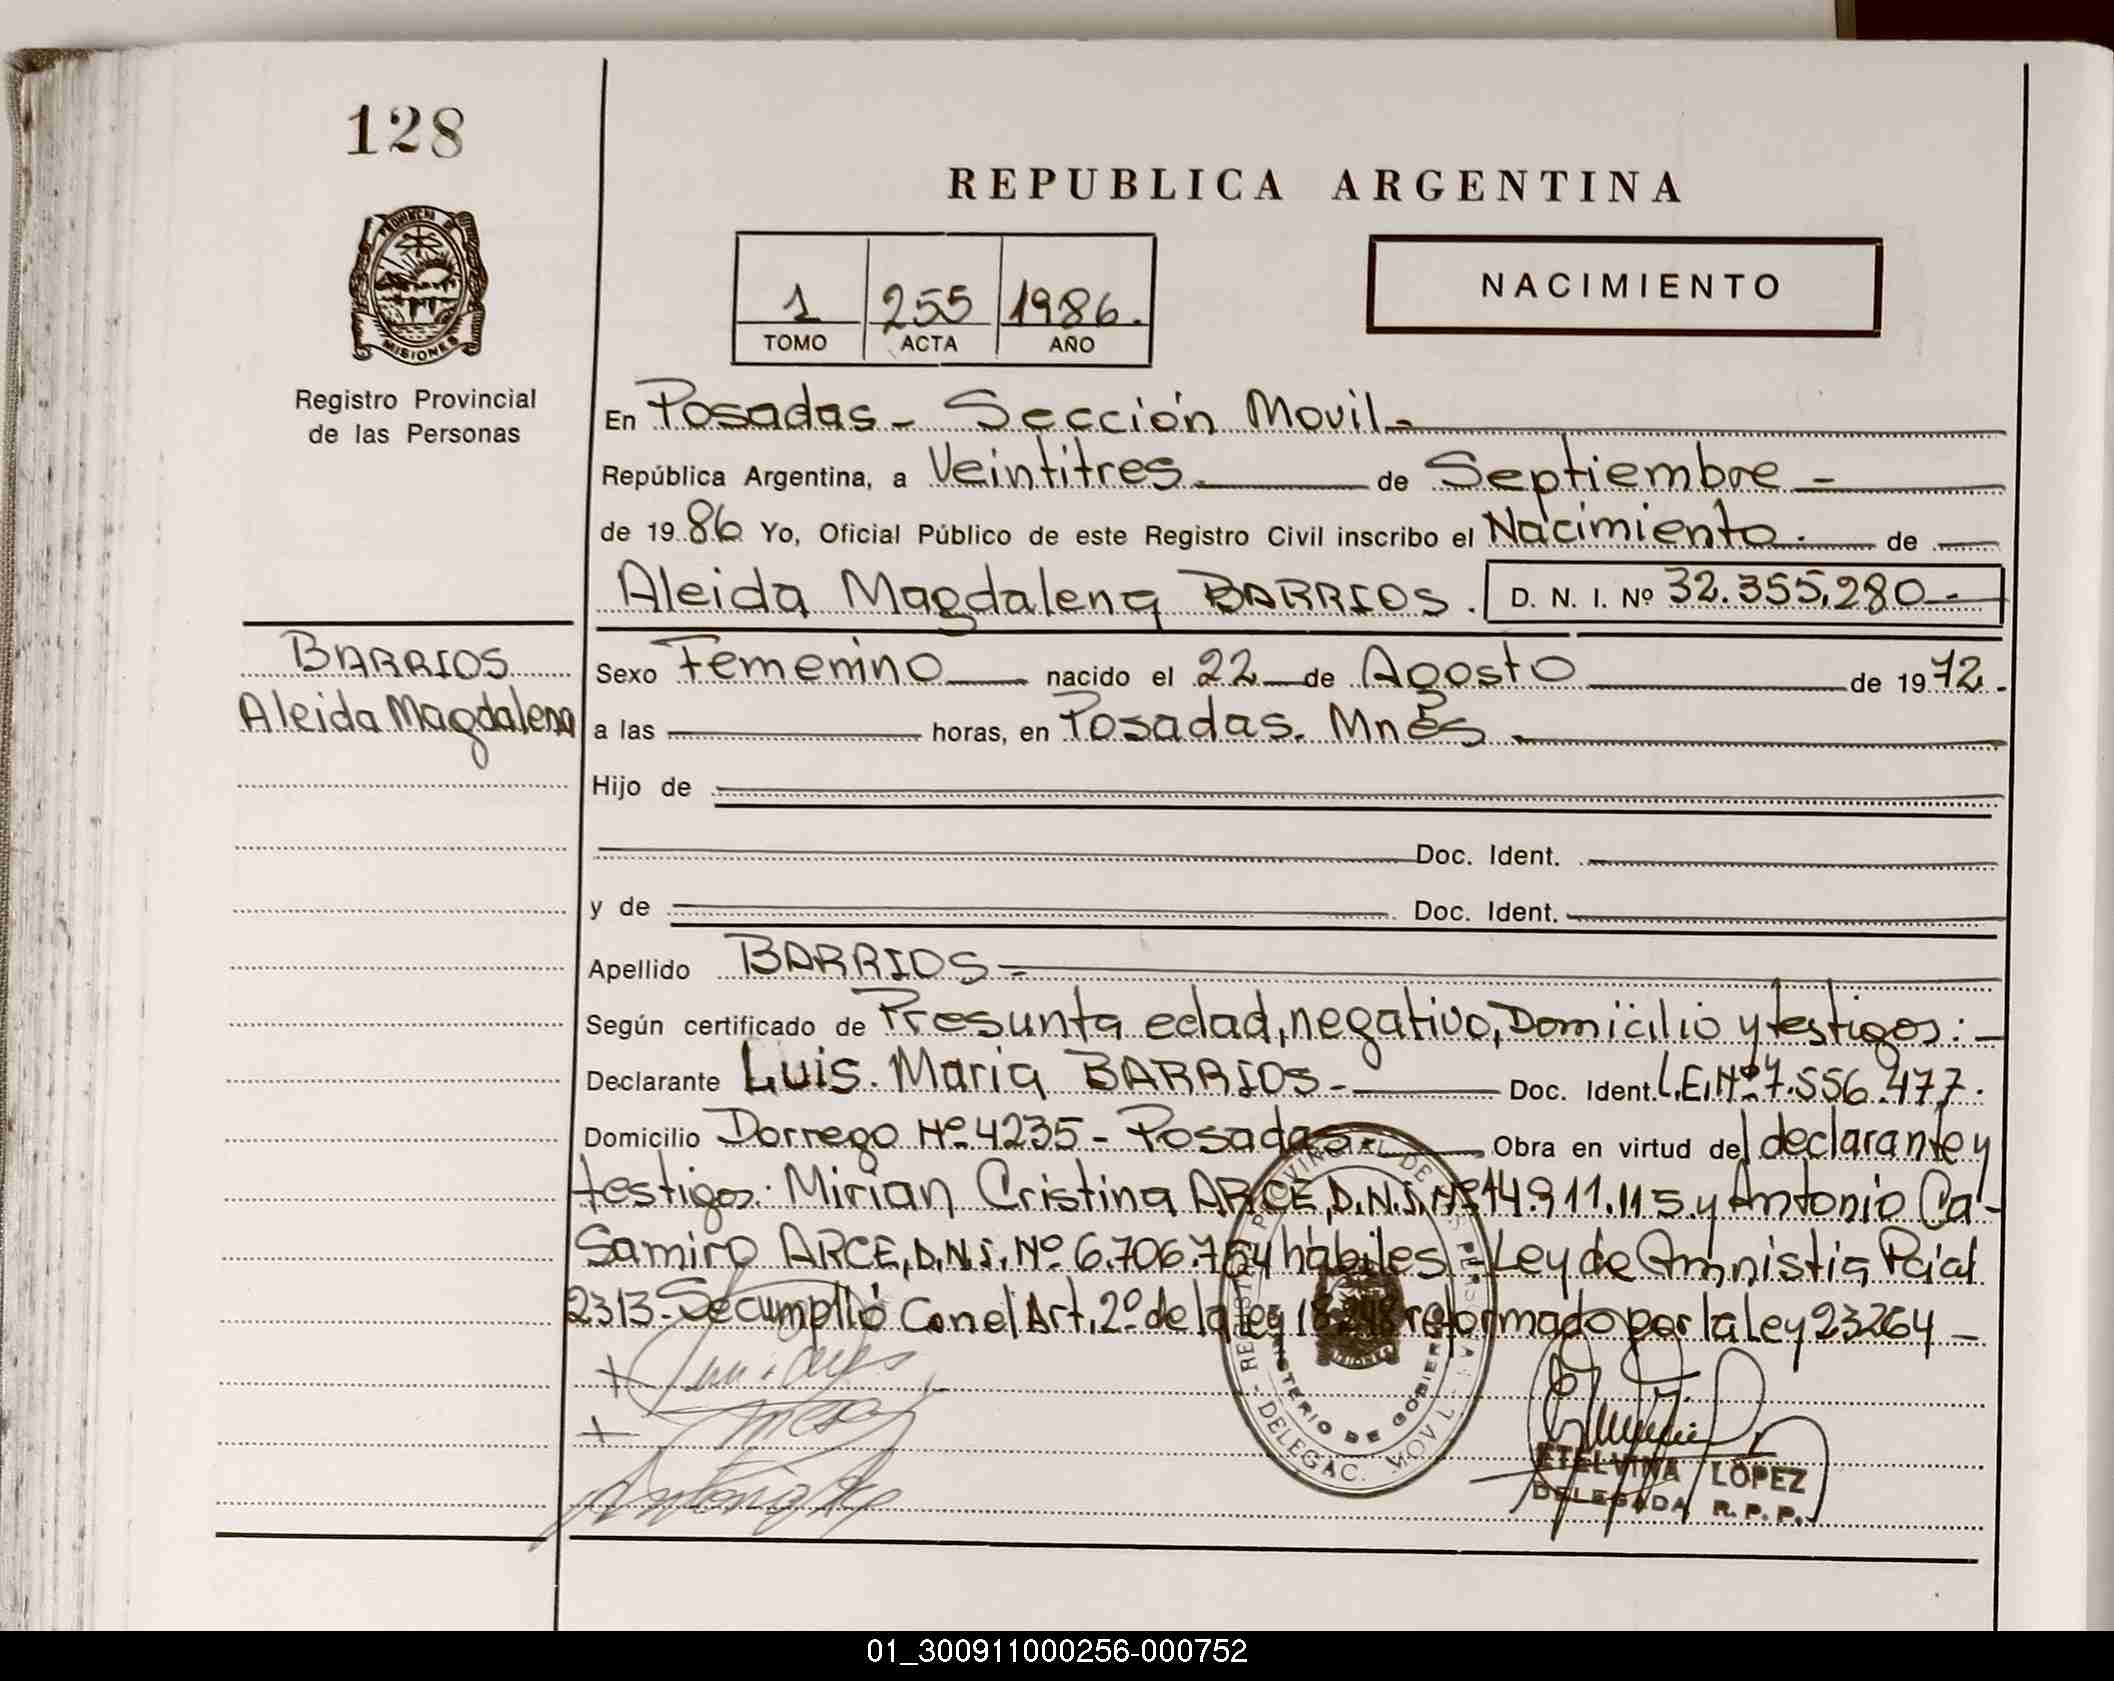 128
REPUBLICA ARGENTINA
NACIMIENTO
1 255 1986.
TOMO ACTA AÑO
PROVINCIA DE
MISIONES
Registro Provincial
de las Personas
En Posadas - Sección Movil -
República Argentina, a Veintitres. de Septiembre -
de 19 86 Yo, Oficial Público de este Registro Civil inscribo el Nacimiento. de
Aleida Magdalena BARRIOS. D. N. I. Nº 32.355.280 -
BARRIOS
Aleida Magdalena
Sexo Femenino nacido el 22 de Agosto de 19 72.
a las horas, en Posadas. Mnes
Hijo de
Doc. Ident.
y de Doc. Ident.
Apellido BARRIOS -
Según certificado de Presunta edad, negativo, Domicilio y testigos: -
Declarante Luis. Maria BARRIOS - Doc. Ident. L.E. Nº 7.556.477.
Domicilio Dorrego Nº 4235 - Posadas Obra en virtud del declarante y
testigos: Mirian Cristina ARCE, D.N.I. Nº 14.911.115 y Antonio Ca-
samiro ARCE, D.N.I. Nº 6.706.764 hábiles - Ley de Amnistia Pcial
2313 - Se cumplió con el Art. 2º de la ley 18.248 reformado por la ley 23264 -
REGISTRO PROVINCIAL DE LAS PERSONAS
MINISTERIO DE GOBIERNO
DELEGAC. MOVIL
MISIONES
ETELVINA LOPEZ
DELEGADA R. P. P.
01_300911000256-000752